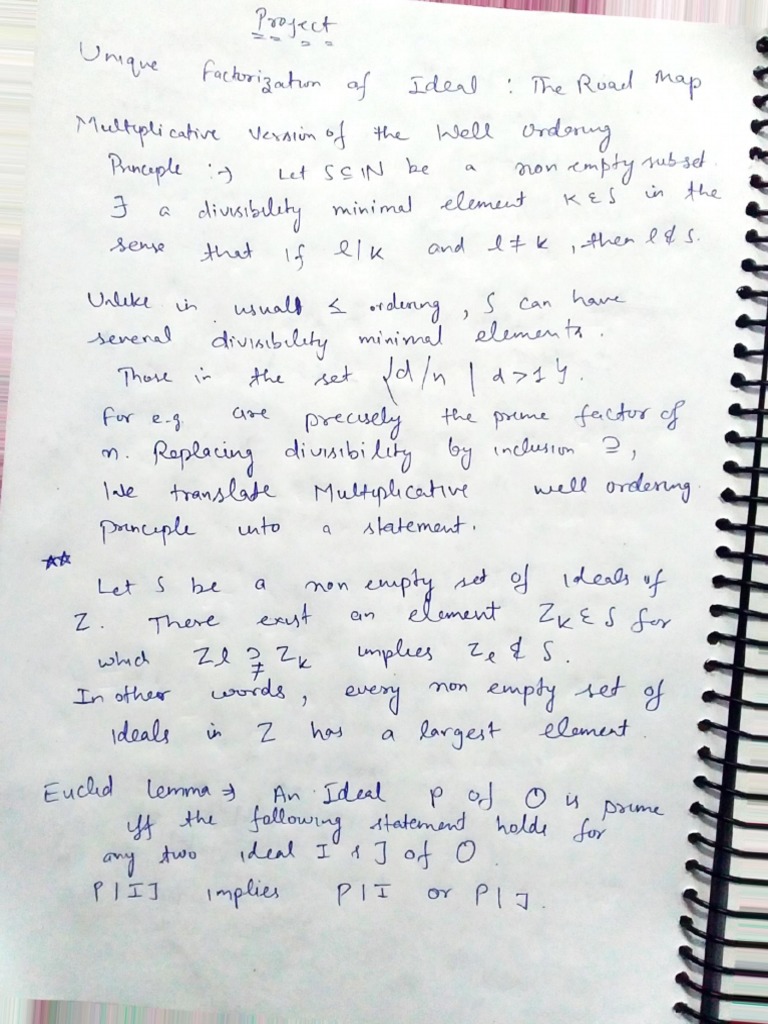 Project
Unique Factorization of Ideal : The Road Map
Multiplicative Version of the Well Ordering
Principle :→ Let S⊆ℕ be a non empty subset.
∃ a divisibility minimal element K ∈ S in the
sense that if l/k and l≠k, then l∉S.
Unlike in usual ≤ ordering, S can have
several divisibility minimal elements.
Those in the set {d/n | d>1}.
For e.g. are precisely the prime factor of
n. Replacing divisibility by inclusion ⊇,
We translate Multiplicative well ordering
principle into a statement.
☆☆
Let S be a non empty set of ideals of
Z. There exist an element Zk ∈ S for
which Zl ⊋ Zk implies Zl ∉ S.
In other words, every non empty set of
ideals in Z has a largest element.
Euclid lemma → An Ideal P of O is prime
iff the following statement holds for
any two ideal I & J of O.
P|IJ implies P|I or P|J.